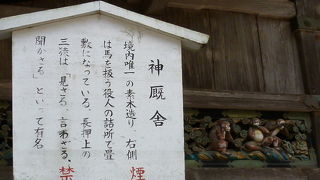 神厩舎
境内唯一の素木造り 右側
は馬を扱う役人の詰所で畳
敷になっている。長押上の
三猿は、見ざる、言わざる、
聞かざる、といって有名
禁
煙